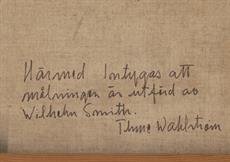 Härmed Intygas att
målningen är utförd av
Wilhelm Smith.
Thure Wahlström